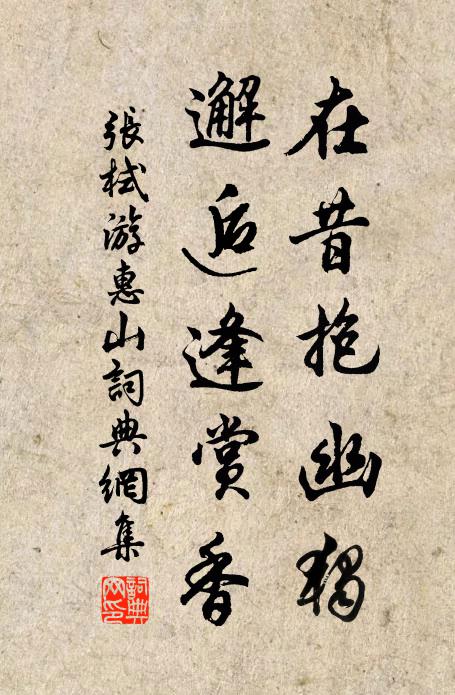 在昔抱幽獨
邂逅逢賞音
張栻游惠山詞典網集
詞典網印